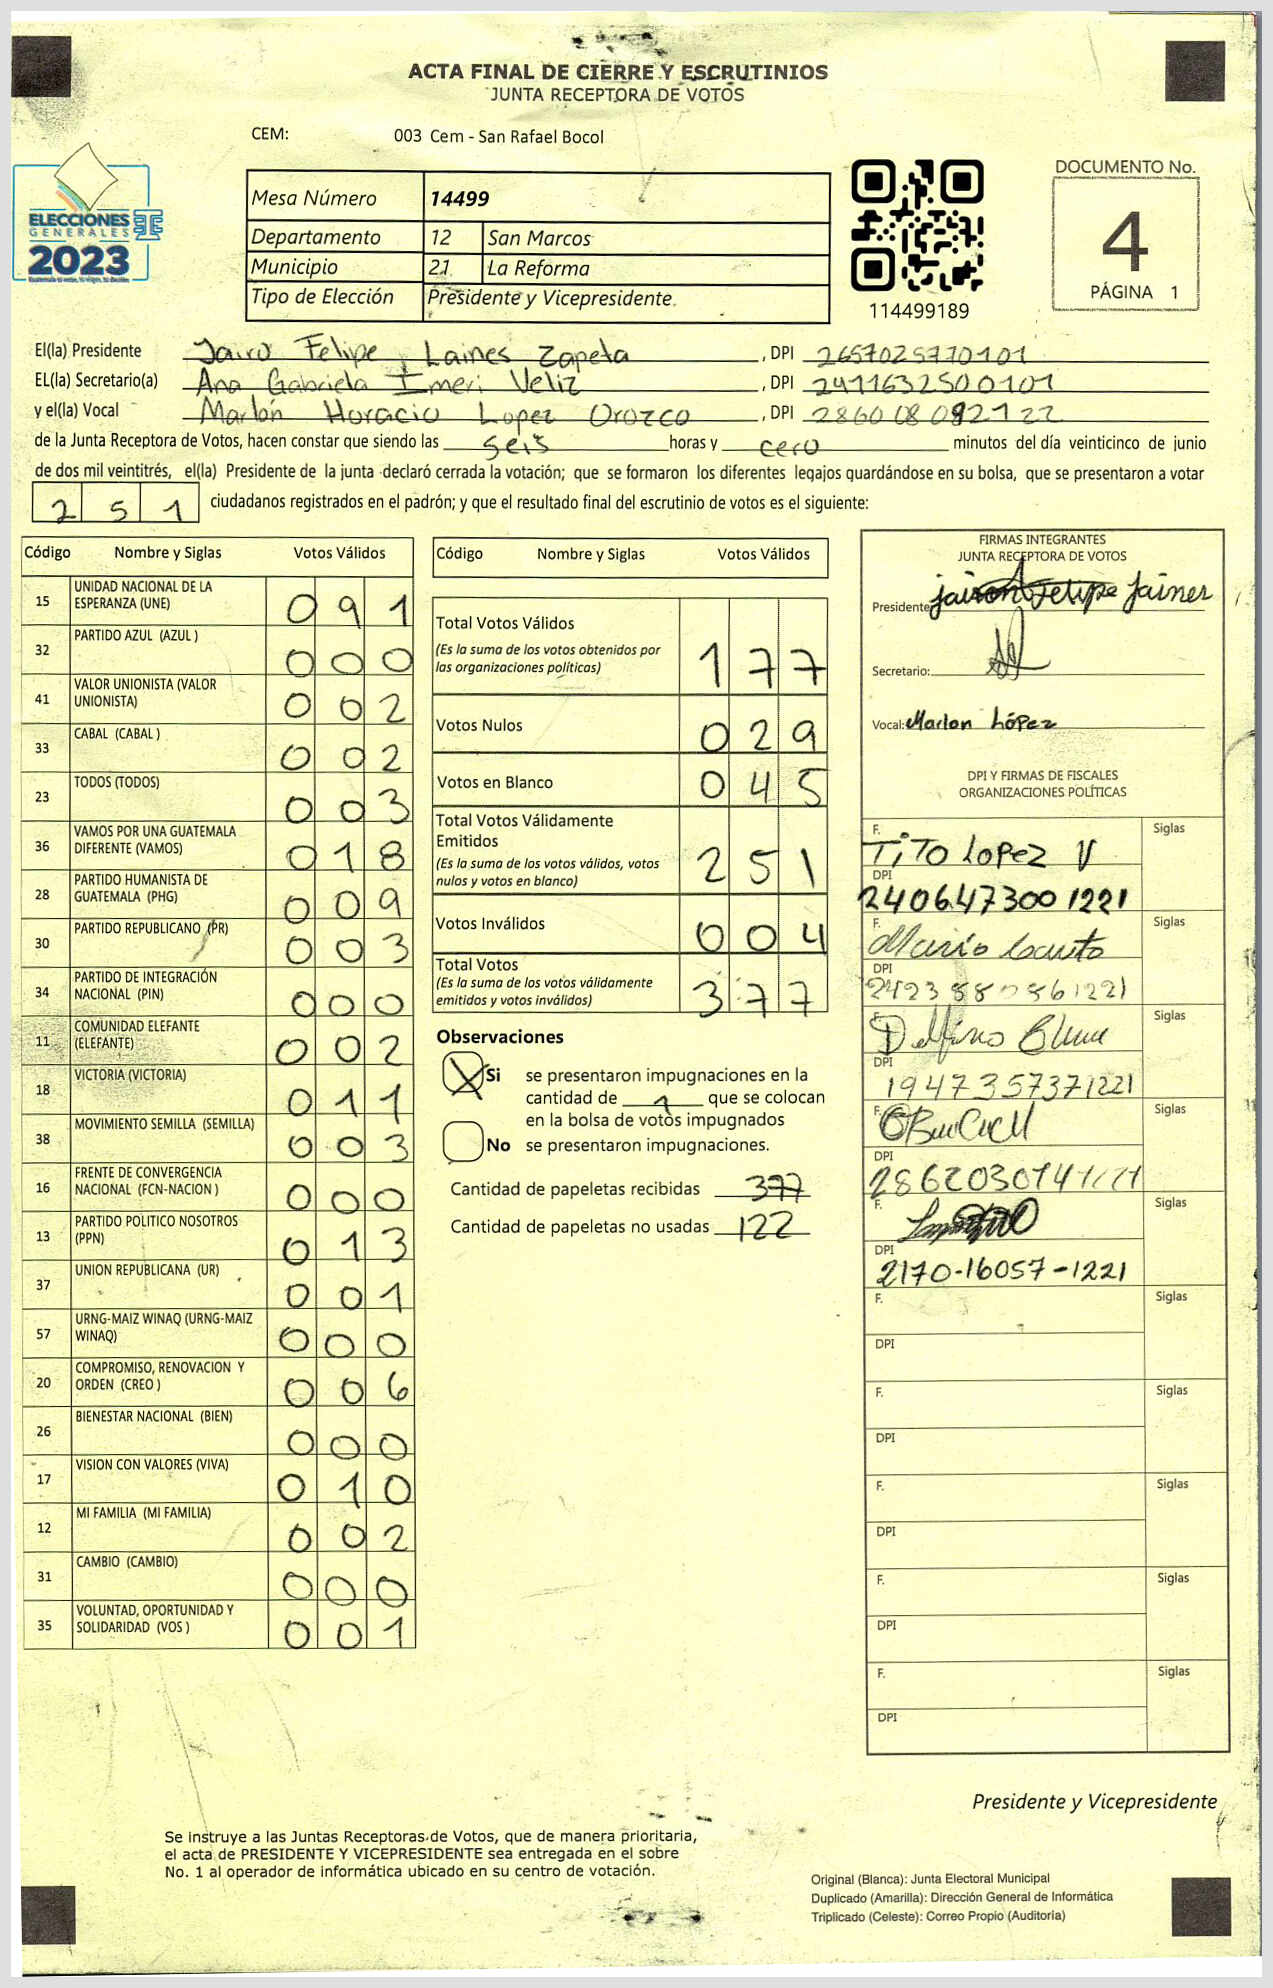 ACTA FINAL DE CIERRE Y ESCRUTINIOS
JUNTA RECEPTORA DE VOTOS
CEM: 003 Cem - San Rafael Bocol
ELECCIONES
GENERALES
2023
Mesa Número 14499
Departamento 12 San Marcos
Municipio 21 La Reforma
Tipo de Elección Presidente y Vicepresidente
114499189
DOCUMENTO No.
4
PÁGINA 1
El(la) Presidente Jairo Felipe Laines Zapeta, DPI 2657025770101
EL(la) Secretario(a) Ana Gabriela Imeri Veliz, DPI 2411632500101
y el(la) Vocal Marlon Horacio Lopez Orozco, DPI
de la Junta Receptora de Votos, hacen constar que siendo las seis horas y cero minutos del día veinticinco de junio
de dos mil veintitrés, el(la) Presidente de la junta declaró cerrada la votación; que se formaron los diferentes legajos guardándose en su bolsa, que se presentaron a votar
251 ciudadanos registrados en el padrón; y que el resultado final del escrutinio de votos es el siguiente:
Código Nombre y Siglas Votos Válidos
15 UNIDAD NACIONAL DE LA ESPERANZA (UNE) 091
32 PARTIDO AZUL (AZUL ) 000
41 VALOR UNIONISTA (VALOR UNIONISTA) 002
33 CABAL (CABAL ) 002
23 TODOS (TODOS) 003
36 VAMOS POR UNA GUATEMALA DIFERENTE (VAMOS) 018
28 PARTIDO HUMANISTA DE GUATEMALA (PHG) 009
30 PARTIDO REPUBLICANO (PR) 003
34 PARTIDO DE INTEGRACIÓN NACIONAL (PIN) 000
11 COMUNIDAD ELEFANTE (ELEFANTE) 002
18 VICTORIA (VICTORIA) 011
38 MOVIMIENTO SEMILLA (SEMILLA) 003
16 FRENTE DE CONVERGENCIA NACIONAL (FCN-NACION ) 000
13 PARTIDO POLITICO NOSOTROS (PPN) 013
37 UNION REPUBLICANA (UR) 001
57 URNG-MAIZ WINAQ (URNG-MAIZ WINAQ) 000
20 COMPROMISO, RENOVACION Y ORDEN (CREO ) 006
26 BIENESTAR NACIONAL (BIEN) 000
17 VISION CON VALORES (VIVA) 010
12 MI FAMILIA (MI FAMILIA) 002
31 CAMBIO (CAMBIO) 000
35 VOLUNTAD, OPORTUNIDAD Y SOLIDARIDAD (VOS ) 001
Código Nombre y Siglas Votos Válidos
Total Votos Válidos
(Es la suma de los votos obtenidos por las organizaciones políticas) 177
Votos Nulos 029
Votos en Blanco 045
Total Votos Válidamente Emitidos
(Es la suma de los votos válidos, votos nulos y votos en blanco) 251
Votos Inválidos 004
Total Votos
(Es la suma de los votos válidamente emitidos y votos inválidos) 377
Observaciones
X Si se presentaron impugnaciones en la
cantidad de 1 que se colocan
en la bolsa de votos impugnados
No se presentaron impugnaciones.
Cantidad de papeletas recibidas 377
Cantidad de papeletas no usadas 122
FIRMAS INTEGRANTES
JUNTA RECEPTORA DE VOTOS
Presidente
Secretario:
Vocal: Marlon López
DPI Y FIRMAS DE FISCALES
ORGANIZACIONES POLÍTICAS
F. TiTO LOPEZ V Siglas
DPI 2406473001221
F. Mario Siglas
DPI 2423880861221
F. Siglas
DPI 1947357371221
F. Siglas
DPI
F. Siglas
DPI 2170-16057-1221
F. Siglas
DPI
F. Siglas
DPI
F. Siglas
DPI
F. Siglas
DPI
F. Siglas
DPI
Presidente y Vicepresidente
Se instruye a las Juntas Receptoras de Votos, que de manera prioritaria,
el acta de PRESIDENTE Y VICEPRESIDENTE sea entregada en el sobre
No. 1 al operador de informática ubicado en su centro de votación.
Original (Blanca): Junta Electoral Municipal
Duplicado (Amarilla): Dirección General de Informática
Triplicado (Celeste): Correo Propio (Auditoría)